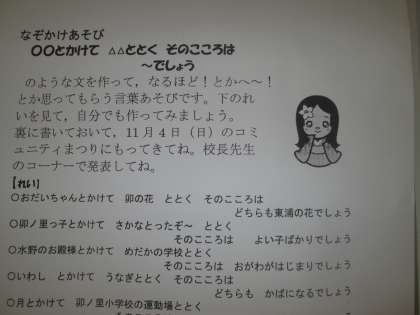 なぞかけあそび
〇〇とかけて △△ととく そのこころは
～でしょう
のような文を作って，なるほど！とかへ～！
とか思ってもらう言葉あそびです。下のれ
いを見て，自分でも作ってみましょう。
裏に書いておいて，11月4日（日）のコミ
ュニティまつりにもってきてね。校長先生
のコーナーで発表してね。
【れい】
〇おだいちゃんとかけて 卯の花 ととく そのこころは
どちらも東浦の花でしょう
〇卯ノ里っ子とかけて さかなとったぞ～ ととく
そのこころは よい子ばかりでしょう
〇水野のお殿様とかけて めだかの学校ととく
そのこころは おがわがはじまりでしょう
〇いわし とかけて うなぎととく そのこころは
どちらも かばになるでしょう
〇月とかけて 卯ノ里小学校の運動場ととく